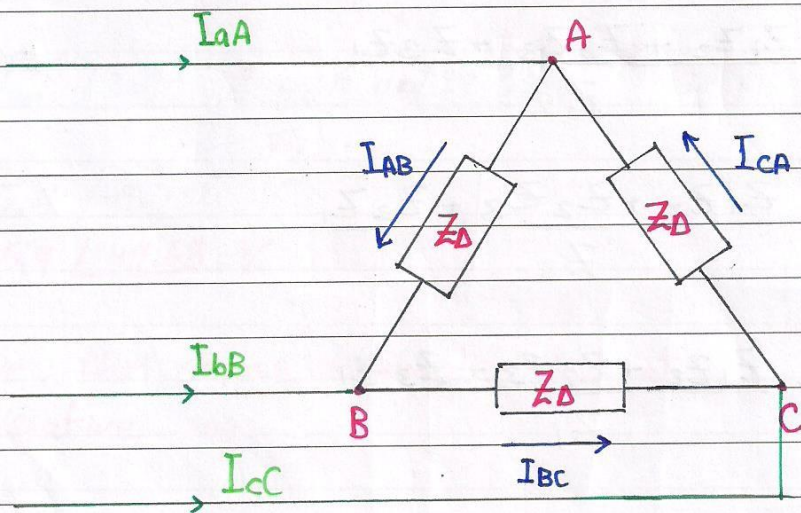 IaA
A
IAB
ICA
ZΔ
ZΔ
IbB
B
ZΔ
C
IBC
IcC